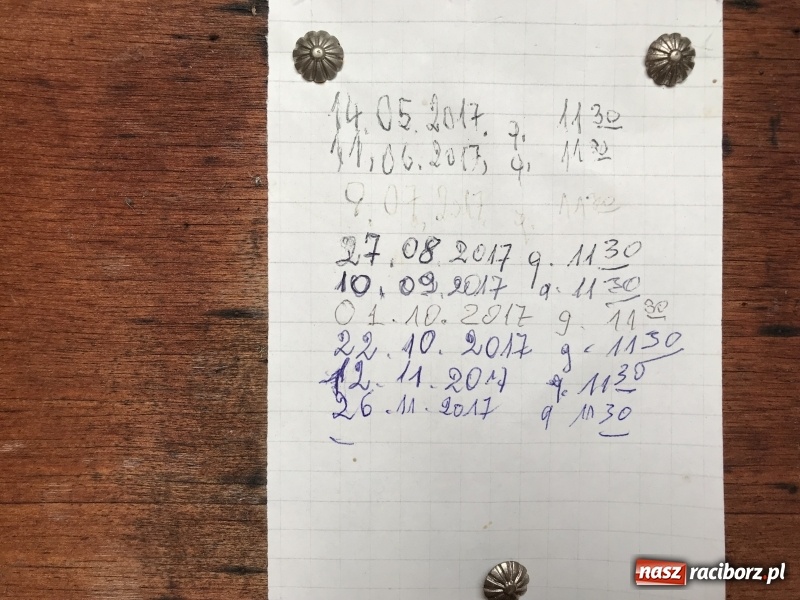 14.05.2017. g. 11 30
11.06.2017, g. 11 30
9.07.2017 g. 11 30
27.08.2017 g. 11 30
10.09.2017 g. 11 30
01.10.2017 g. 11 30
22.10.2017 g. 11 30
12.11.2017 g. 11 30
26.11.2017 g 11 30
nasz raciborz.pl